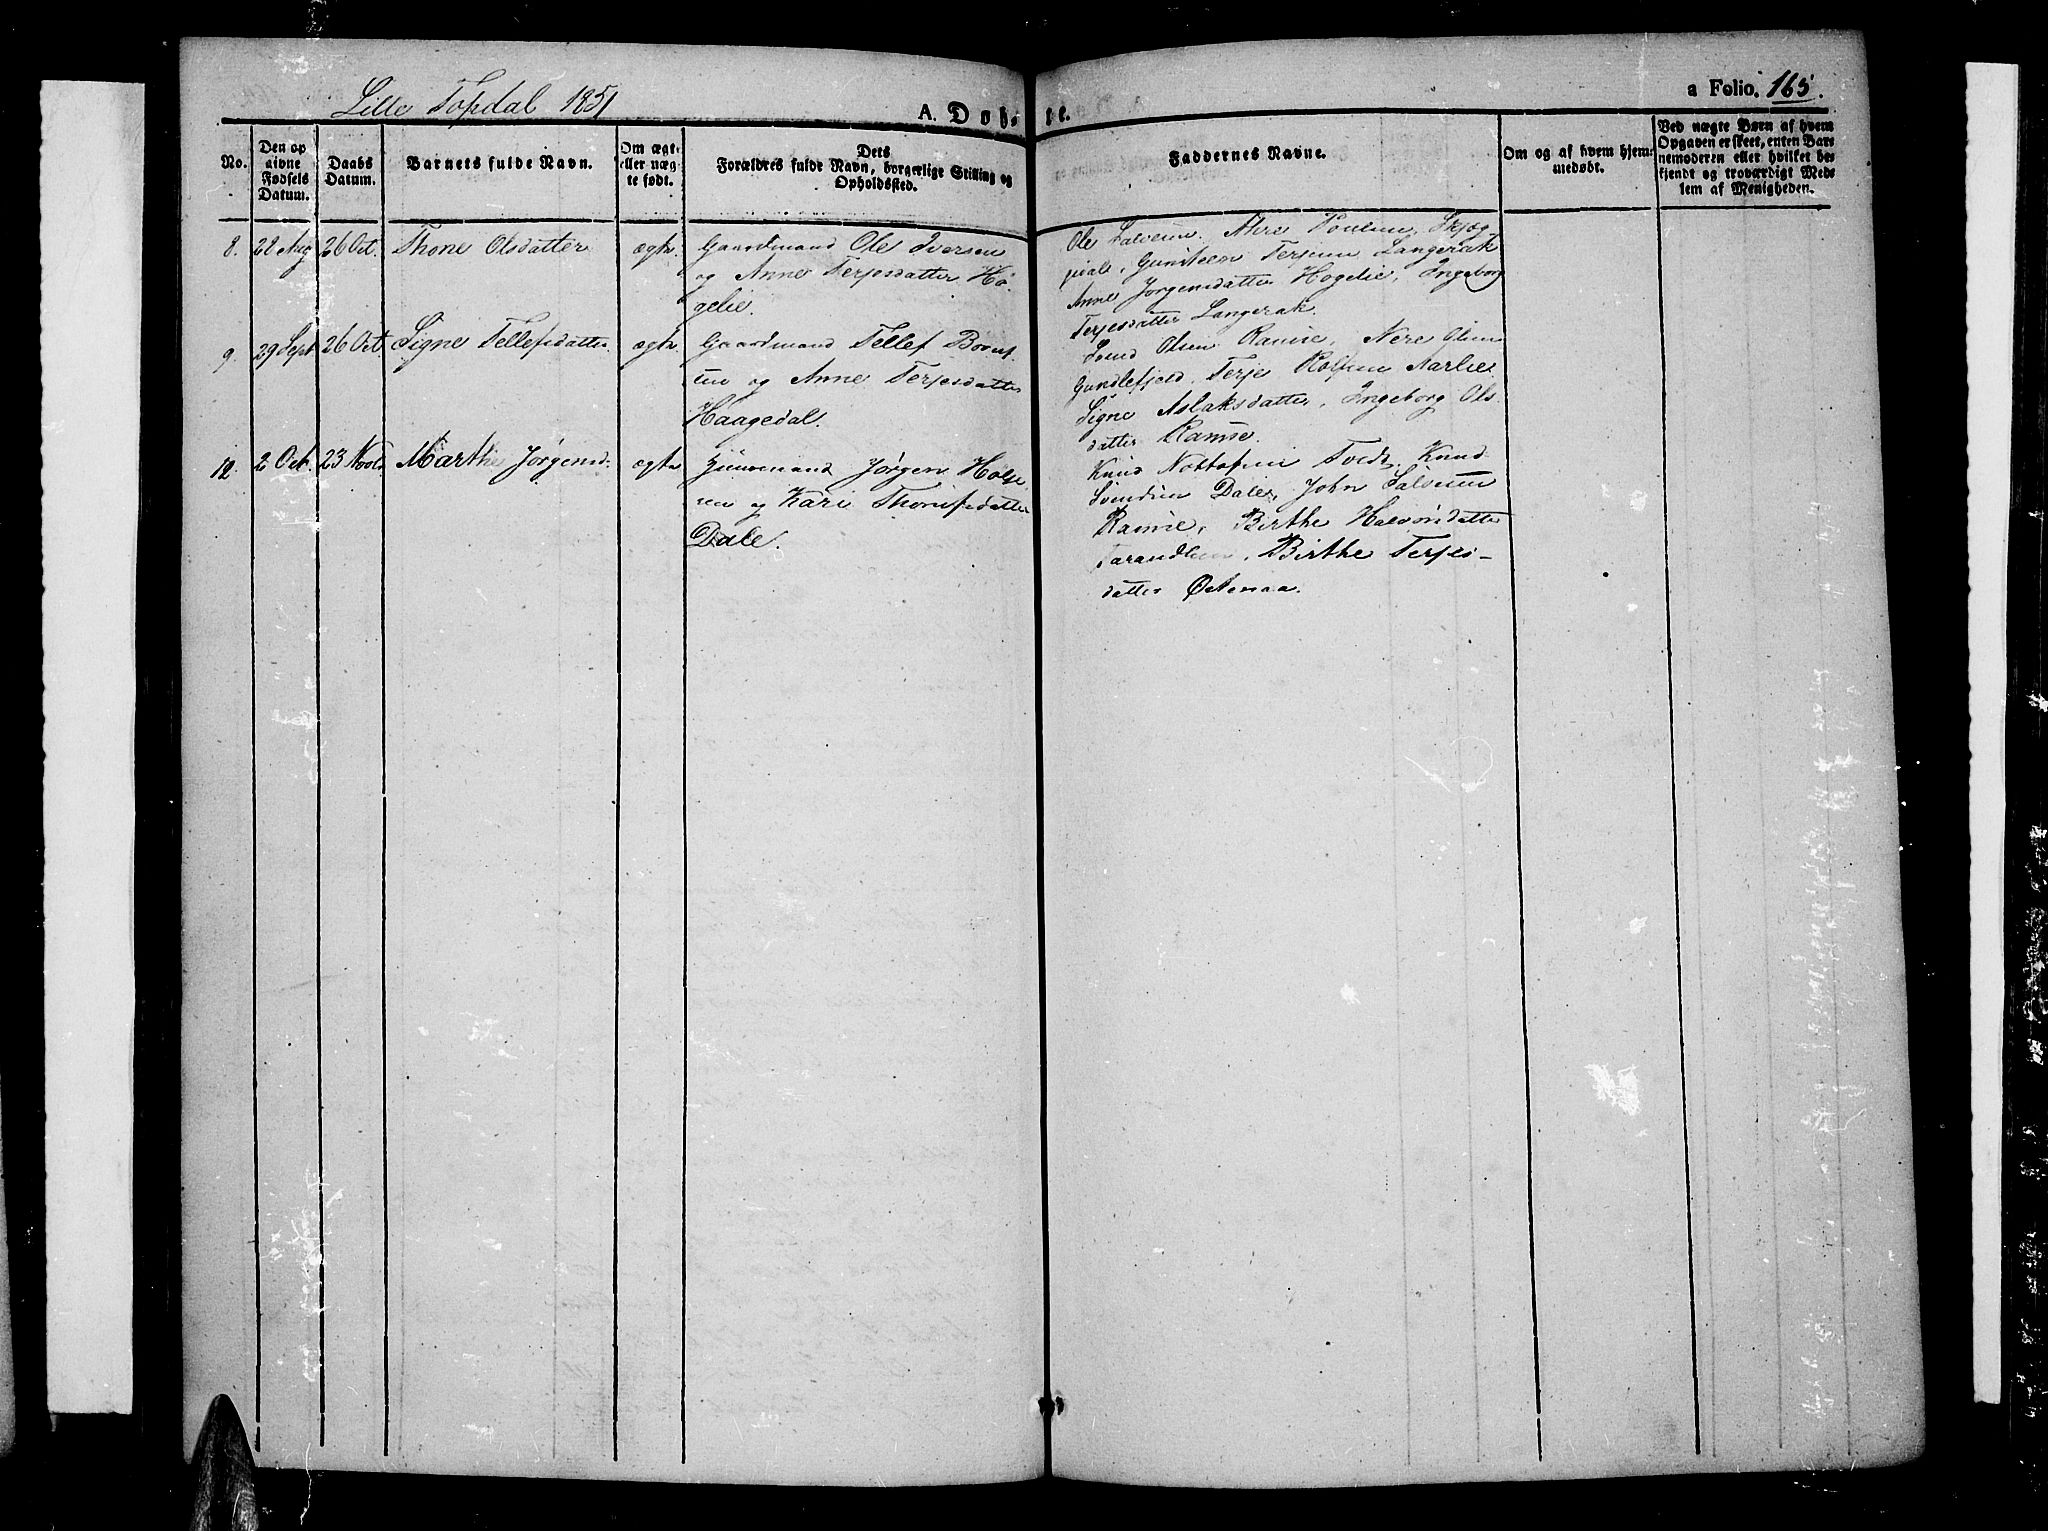 Lille Topdal 1851
A. Døbte.
a Folio. 165.
No.
Den op
givne
Fødsels
Datum.
Daabs
Datum.
Barnets fulde Navn.
Om ægt-
eller uæg-
te født.
Dets
Forældres fulde Navn, borgerlige Stilling og
Opholdssted.
Faddernes Navne.
Om og af hvem hjem-
medøbt.
Ved uægte Børn af hvem
Opgaven er skeet, enten Bar-
nemoderen eller hvilket be-
kjendt og troværdigt Med-
lem af Menigheden.
8. 28 Aug 26 Oct. Thone Olsdatter ægte. Gaardmand Ole Iversen
og Anne Terjesdatter Hø-
gelie.
Ole Salvesen.
Gunsteen Terjesen Langerak
Anne Jørgensdatter Hogelie, Ingeborg
Terjesdatter Langerak.
9. 29 Sept 26 Oct Signe Tellefsdatter ægte. Gaardmand Tellef
og Anne Terjesdatter
Haagedal.
Svend Olsen Ramse, Nere Olsen
Gundlefjeld, Terje Rolfsen Aarlie
Signe Aslaksdatter, Ingeborg Ols-
datter Ramse.
12. 2 Oct. 23 Novb. Marthe Jørgensd. ægte Jørgen
og Kari
Dale.
Knud Tvedt, Knud
Svendsen Dale, John Salvesen
Ramse, Birthe Halvorsdatter
Birthe Terjes-
datter